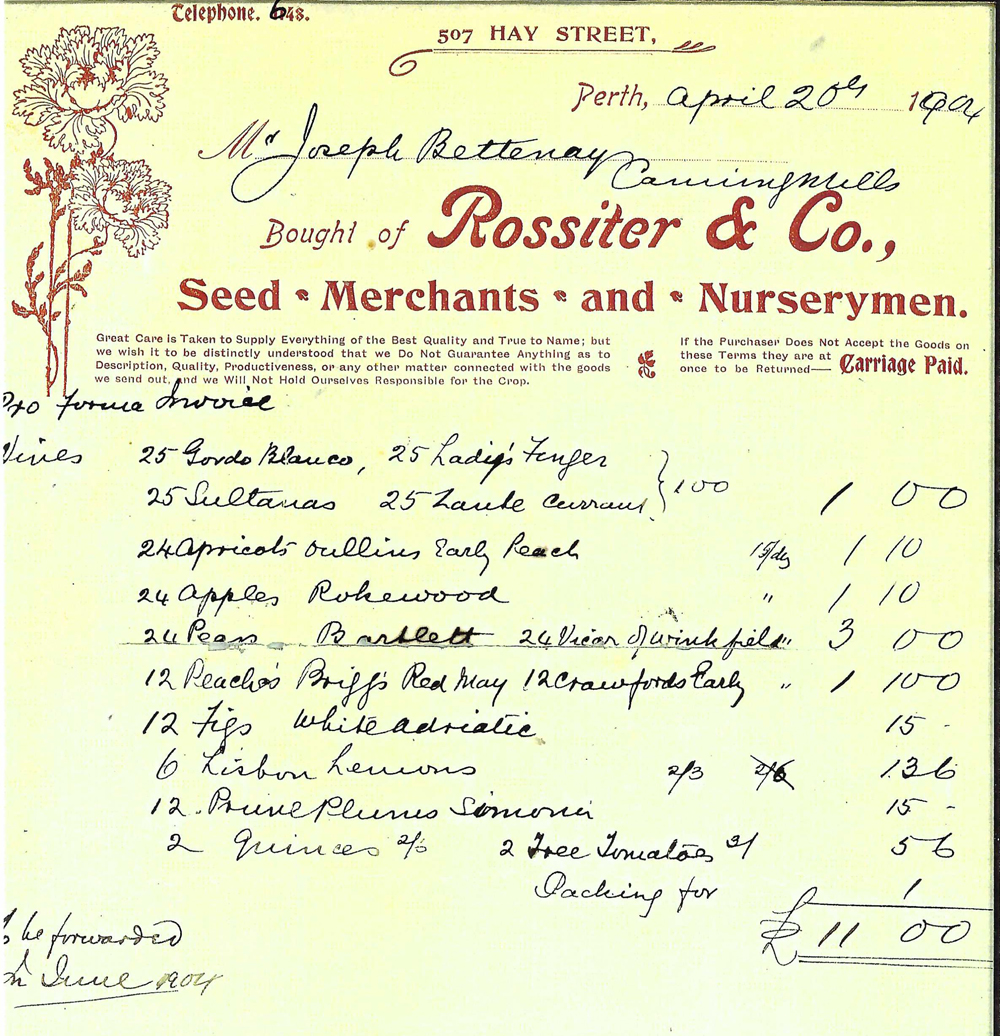 Telephone. 648.
507 HAY STREET,
Perth, April 20th 1904
Mr Joseph Bettenay
Canning Mills
Bought of Rossiter & Co.,
Seed Merchants and Nurserymen.
Great Care is Taken to Supply Everything of the Best Quality and True to Name; but
we wish it to be distinctly understood that we Do Not Guarantee Anything as to
Description, Quality, Productiveness, or any other matter connected with the goods
we send out, and we Will Not Hold Ourselves Responsible for the Crop.
If the Purchaser Does Not Accept the Goods on
these Terms they are at
once to be Returned— Carriage Paid.
Pro forma Invoice
Vines 25 Gordo Blanco, 25 Ladys Finger
25 Sultanas 25 Zante Currant } 100 1 0 0
24 Apricots Oullins Early Peach 15/dz 1 10
24 Apples Rokewood " 1 10
24 Pears Bartlett 24 Vicar of Winkfield " 3 0 0
12 Peaches Briggs Red May 12 Crawfords Early " 1 10 0
12 Figs White Adriatic 15 -
6 Lisbon Lemons 2/3 2/6 13 6
12 Prune Plums Simoni 15 -
2 Quinces 2 Tree Tomatoes 3/ 5 6
Packing for 1
£ 11 0 0
be forwarded
in June 1904